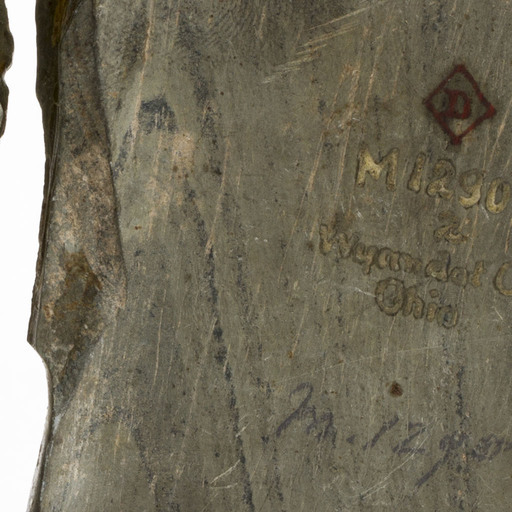 D
M1290
2.
Wyandot C
Ohio
M.1290